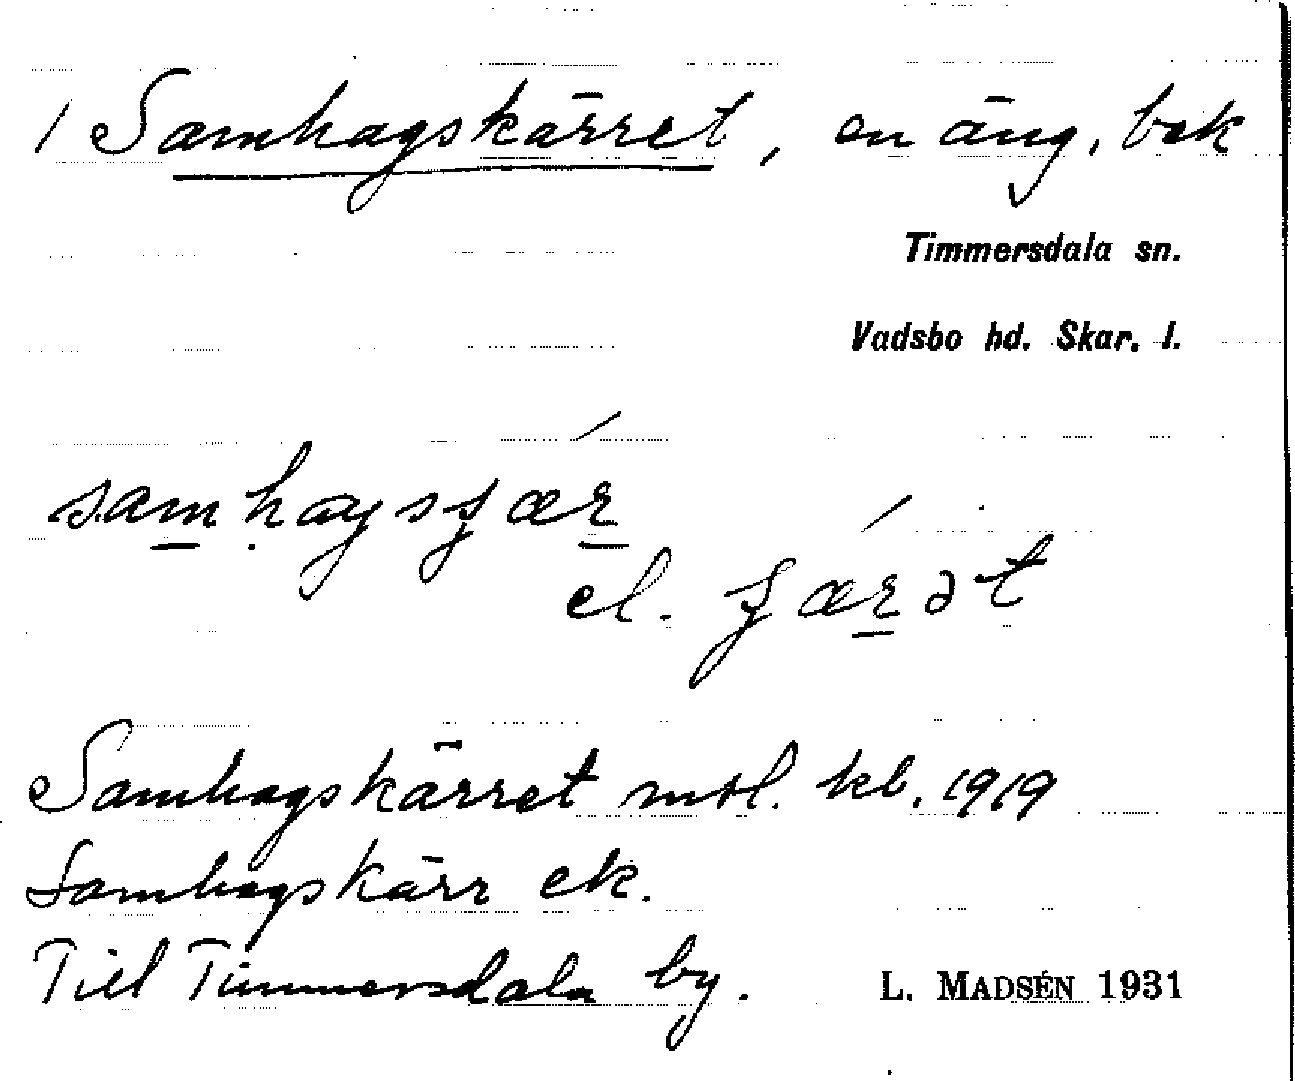 1 Samhagskärret, en äng, bok
Timmersdala sn.
Vadsbo hd. Skar. l.
samhagsʂær
el. ʂærət
Samhagskärret mtl. kb. 1919
Samhagskärr ek.
Till Timmersdala by.
L. MADSÉN 1931